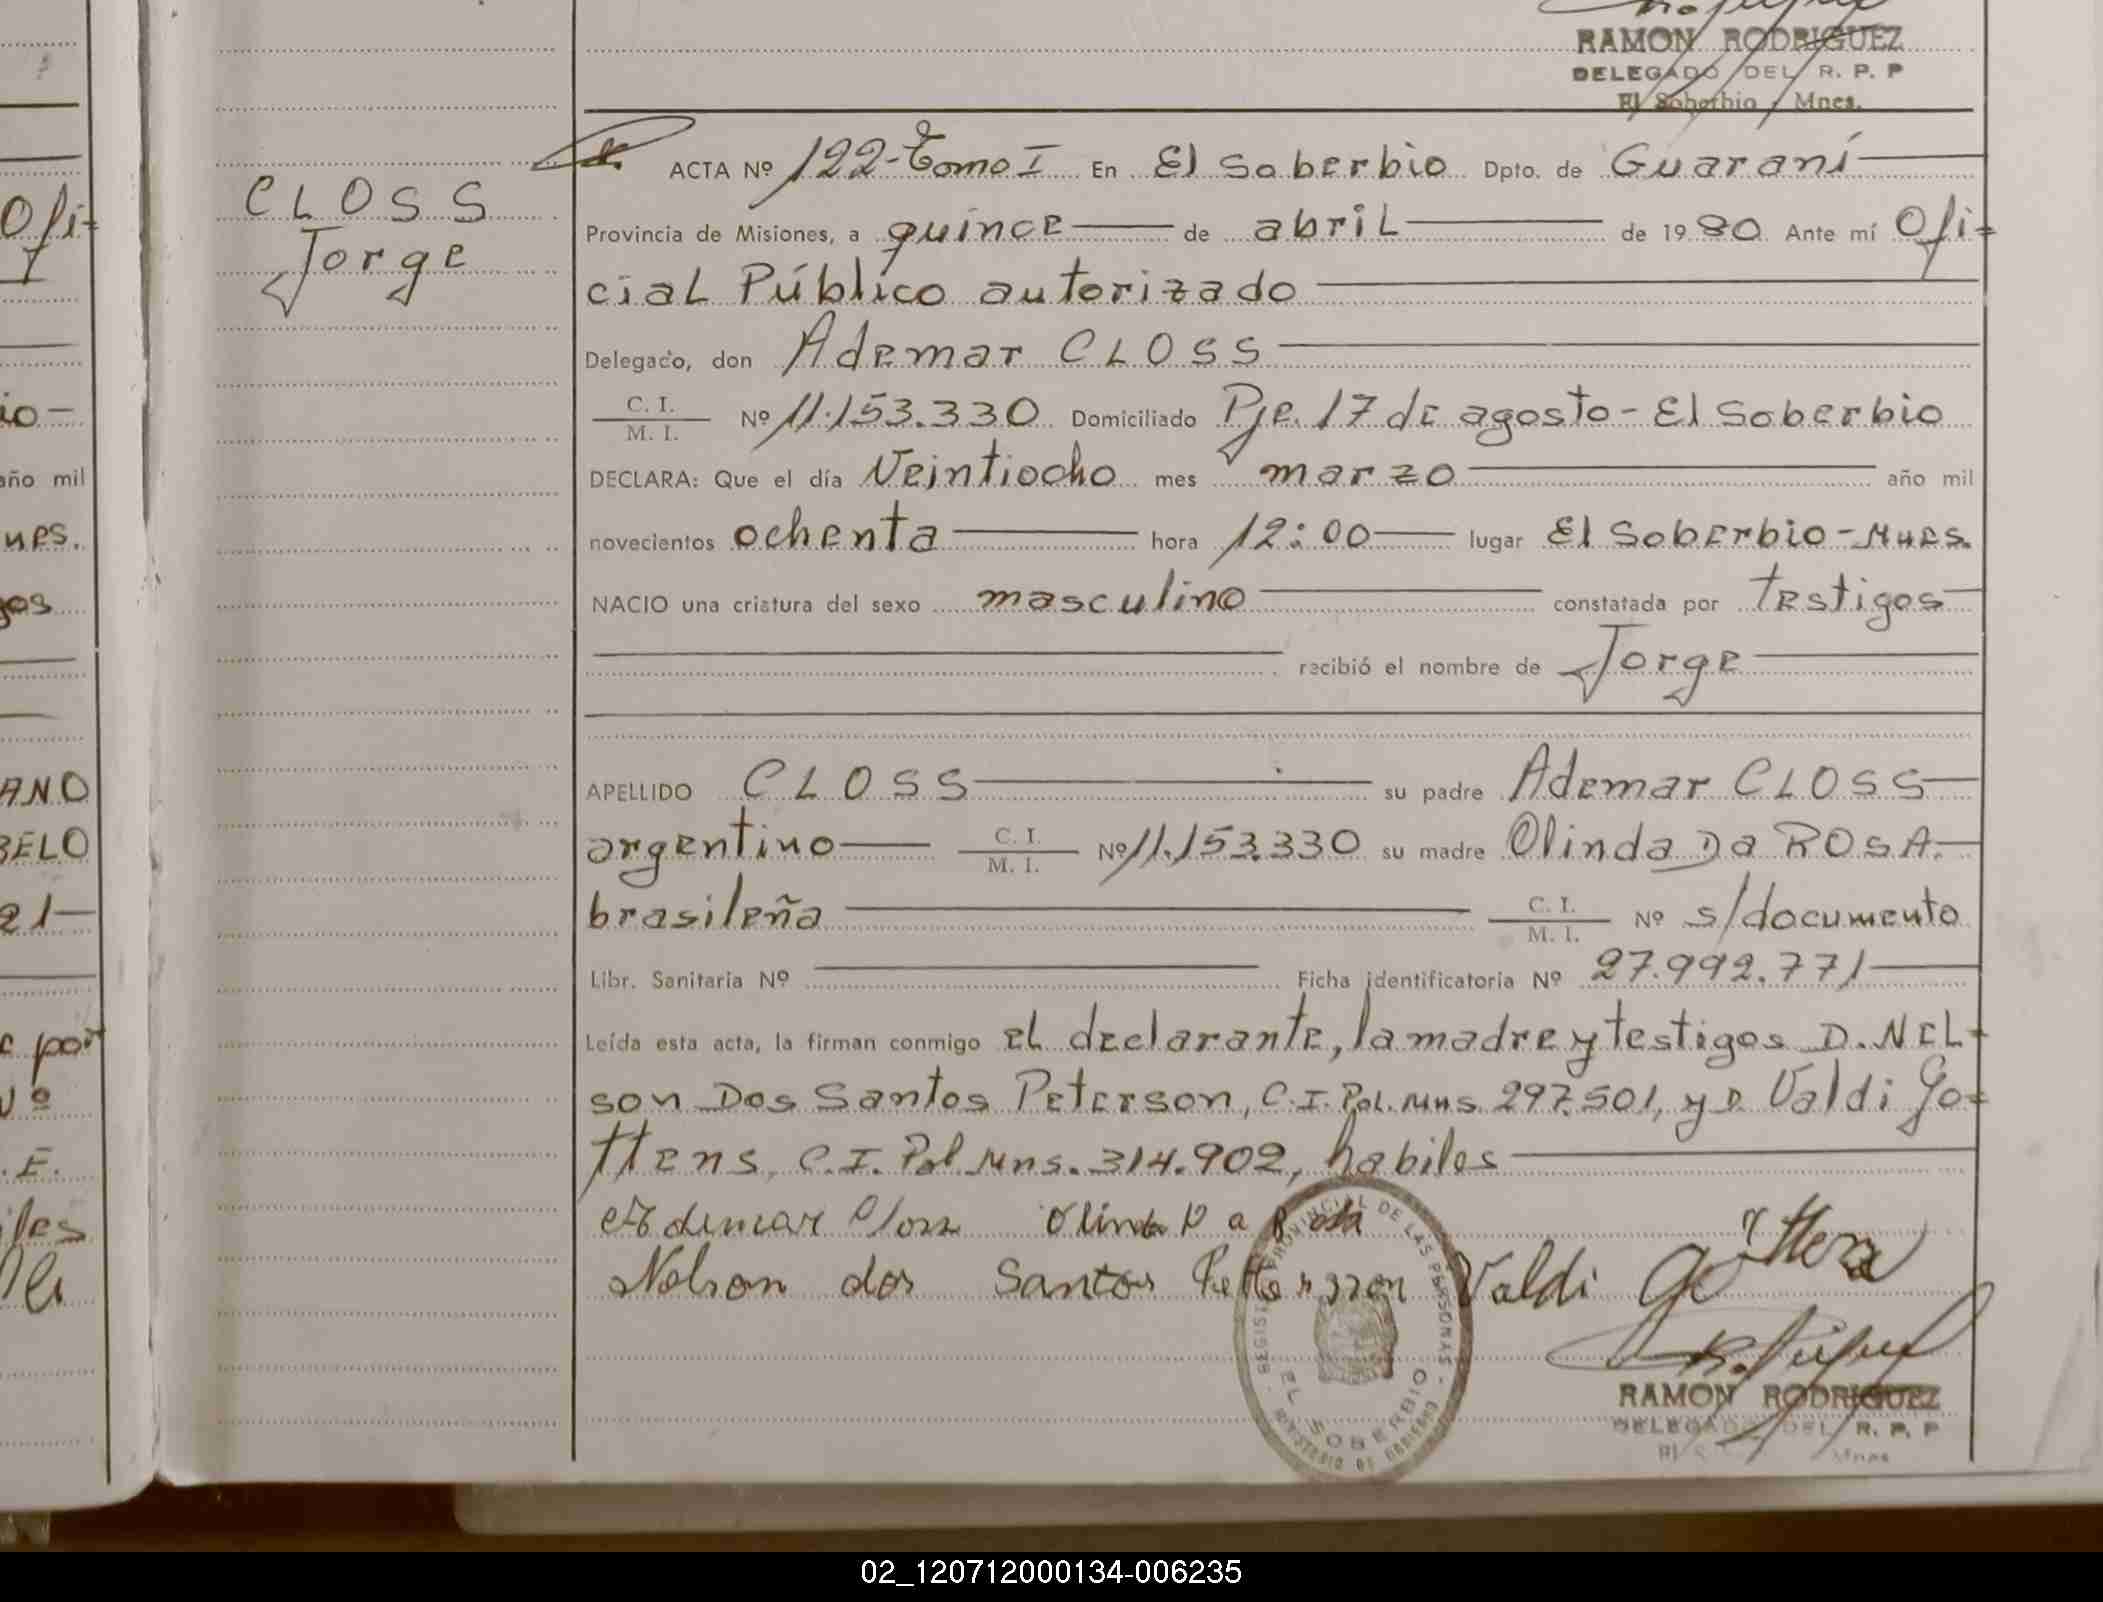 RAMON RODRIGUEZ
DELEGADO DEL R. P. P
El Soberbio - Mnes.
CLOSS
Jorge
ACTA Nº 122-Tomo I En El Soberbio Dpto. de Guaraní
Provincia de Misiones, a quince de abril de 1980 Ante mí Ofi-
cial Público autorizado
Delegado, don Ademar CLOSS
C. I.
M. I.
Nº 11.153.330 Domiciliado Pje. 17 de agosto - El Soberbio
DECLARA: Que el día Veintiocho mes marzo año mil
novecientos ochenta hora 12:00 lugar El Soberbio - Mnes.
NACIO una criatura del sexo masculino constatada por testigos
recibió el nombre de Jorge
APELLIDO CLOSS su padre Ademar CLOSS
argentino C. I. M. I. Nº 11.153.330 su madre Olinda Da ROSA.
brasileña C. I. M. I. Nº s/documento
Libr. Sanitaria Nº Ficha identificatoria Nº 27.992.771
Leída esta acta, la firman conmigo el declarante, la madre y testigos D. NEL-
son Dos Santos Peterson, C.I. Pol. Mns. 297.501, y D. Valdi Go-
ttens, C.I. Pol Mns. 314.902, habiles
Ademar Closs Olinda Da Rosa
Nelson dos Santos Pettersson Valdi Gottens
REGISTRO PROVINCIAL DE LAS PERSONAS
EL SOBERBIO
MINISTERIO DE GOBIERNO
RAMON RODRIGUEZ
DELEGADO DEL R. P. P
El S Mnes
Ofi-
io-
año mil
nes.
gos
ANO
BELO
21
por
Nº
. E.
iles
02_120712000134-006235